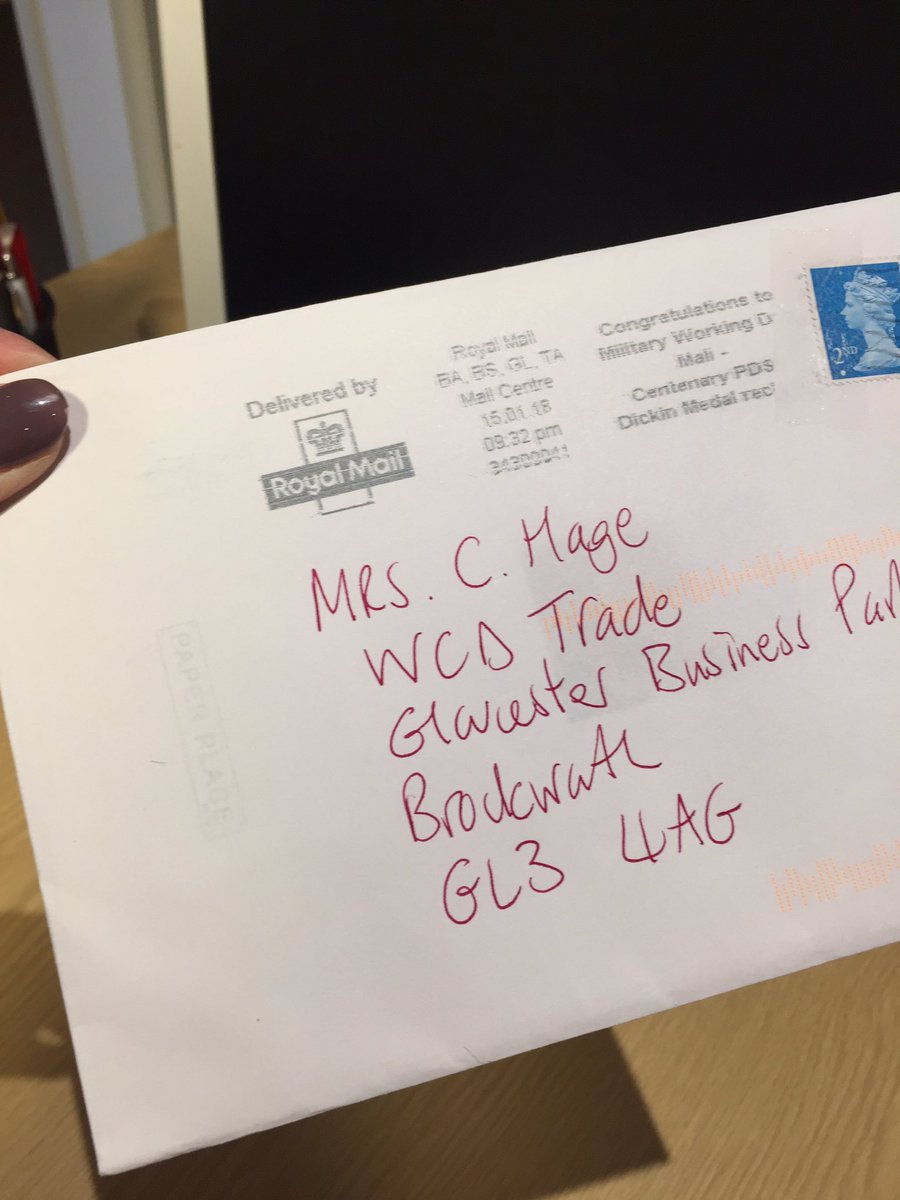 Delivered by
Royal Mail
Royal Mail
BA, BS, GL, TA
Mail Centre
15.01.18
09:32 pm
34300041
Congratulations to
Military Working D
Mali -
Centenary PDS
Dickin Medal
2ND
MRS. C. Hage
WCD Trade
Gloucester Business Par
Brockworth
GL3 4AG
PAPER PLACE